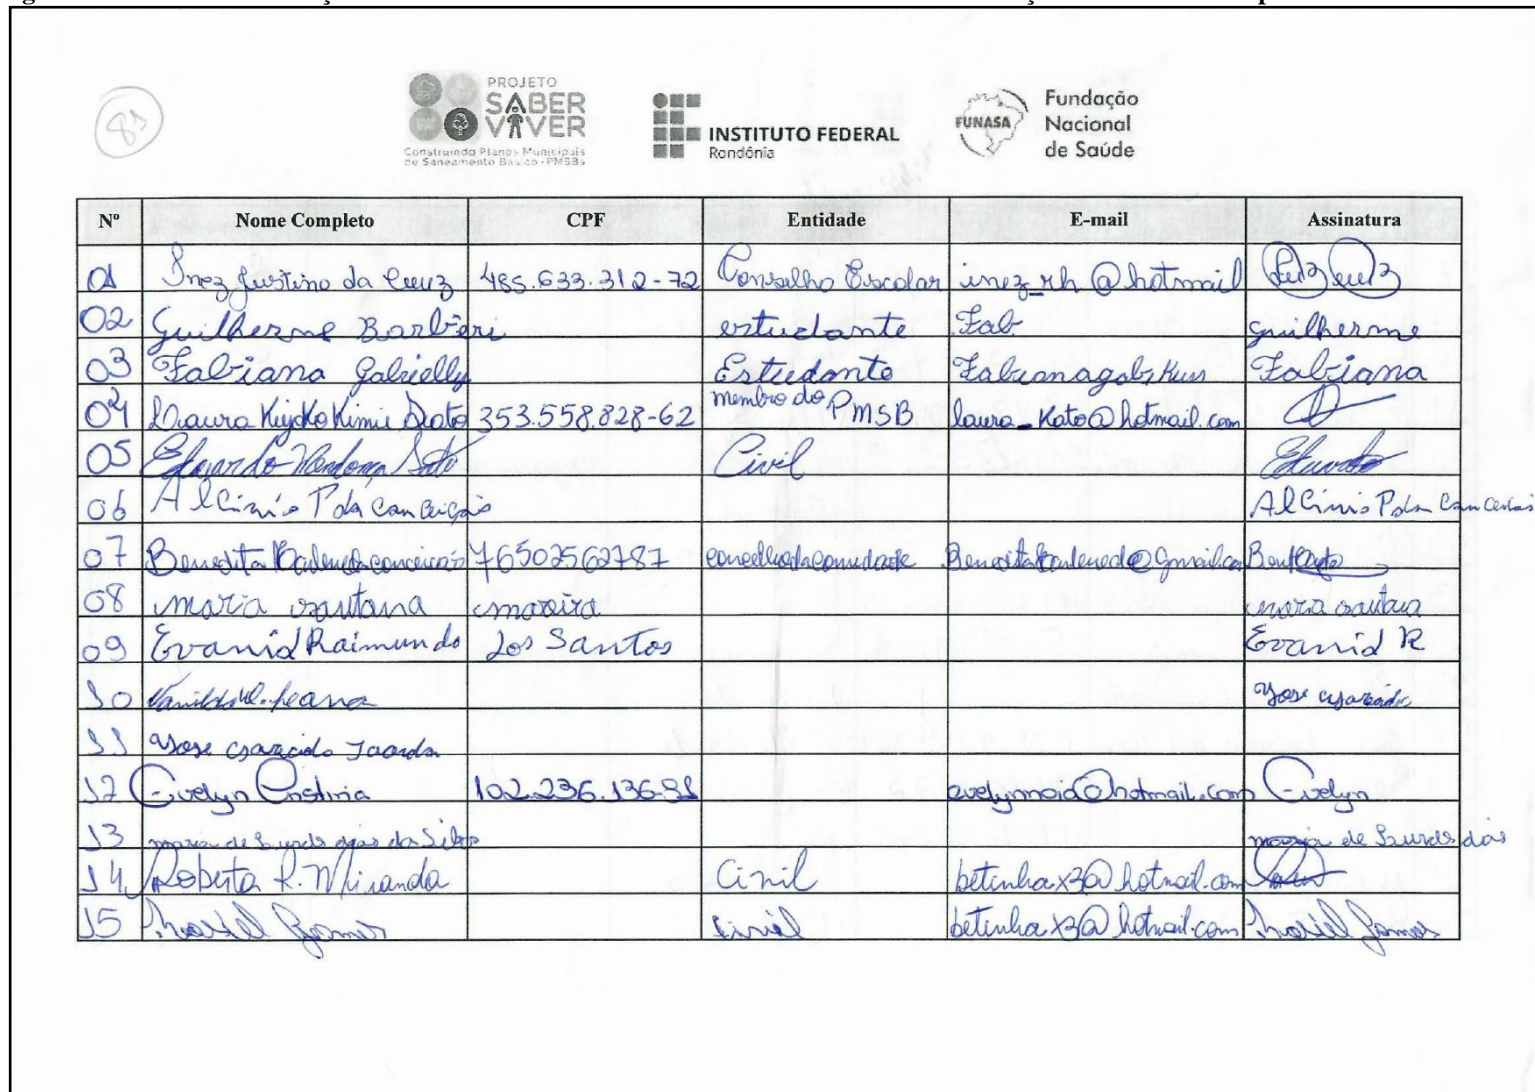 85
PROJETO
SABER
VIVER
Construindo Planos Municipais
de Saneamento Básico - PMSBs
INSTITUTO FEDERAL
Rondônia
FUNASA
Fundação
Nacional
de Saúde
Nº Nome Completo CPF Entidade E-mail Assinatura
01 Inez Justino da Cruz 485.633.312-72 Conselho Escolar inez_rh@hotmail
02 Guilherme Barbieri estudante Fab guilherme
03 Fabiana Gabrielly Estudante Fabianagabskuss Fabiana
04 Laura Kiyoko Kimie 353.558.828-62 membro do PMSB laura_Kato@hotmail.com
05 Eduardo Mendonça Civil Eduardo
06 Alcinio P da Conceição Alcinio P da
07 Benedita 76502562787
08 maria santana moreira maria santana
09 Evanid Raimundo dos Santos Evanid R
10 Jose
11 Jose
12 Evelyn Cristina 102.236.136-81 evelynnoia@hotmail.com Evelyn
13 maria de Lurds dias da Silva maria de Lurds dias
14 Roberta R. Miranda Civil betinhax3@hotmail.com
15 Gomes Civil betinhax3@hotmail.com Gomes